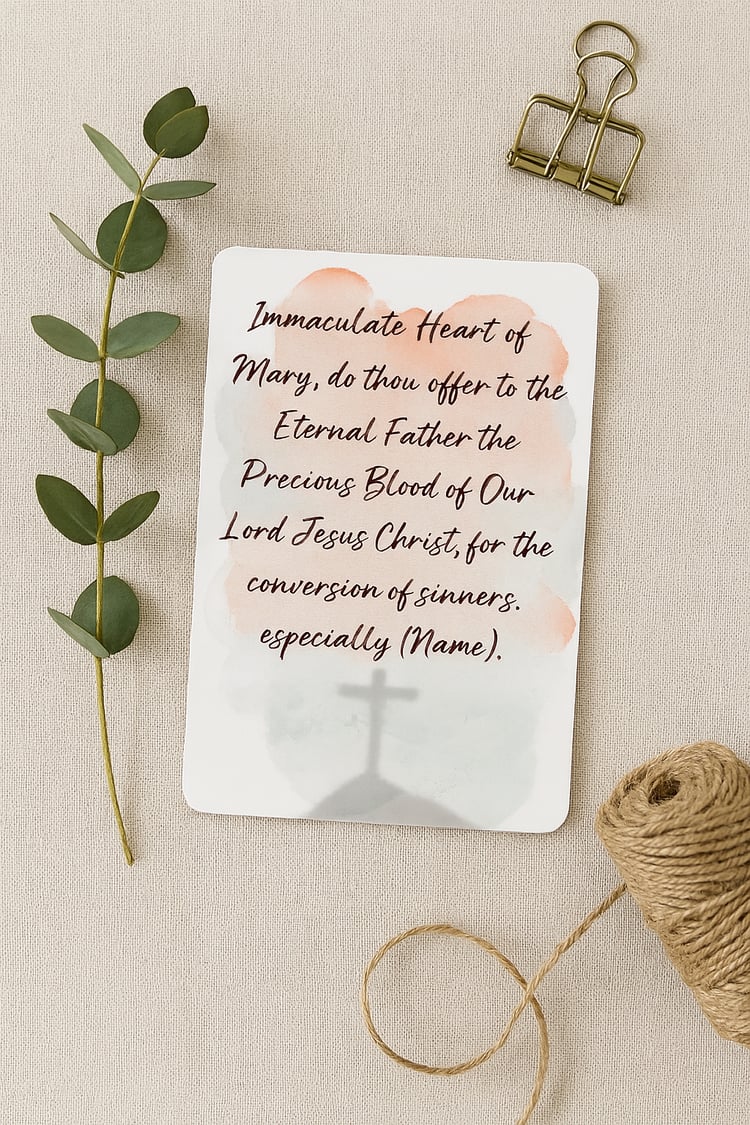 Immaculate Heart of
Mary, do thou offer to the
Eternal Father the
Precious Blood of Our
Lord Jesus Christ, for the
conversion of sinners.
especially (Name).